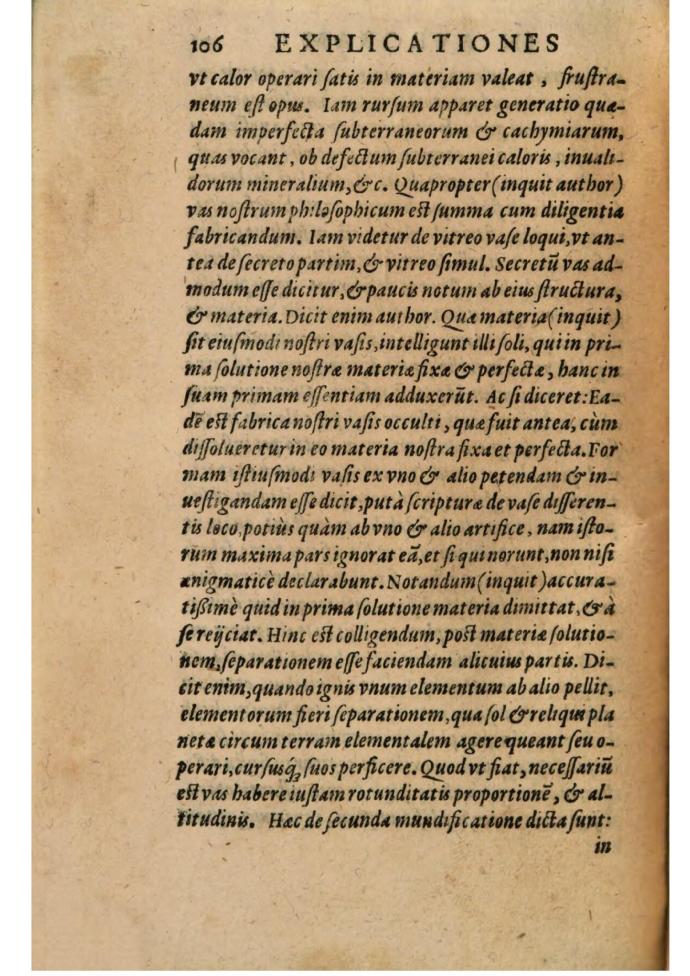 106 EXPLICATIONES
vt calor operari ſatis in materiam valeat, fruſtra-
neum eſt opus. Iam rurſum apparet generatio quæ-
dam imperfecta ſubterraneorum & cachymiarum,
quas vocant, ob defectum ſubterranei caloris, inuali-
dorum mineralium, &c. Quapropter (inquit author)
vas noſtrum philoſophicum eſt ſumma cum diligentia
fabricandum. Iam videtur de vitreo vaſe loqui, vt an-
tea de ſecreto partim, & vitreo ſimul. Secretũ vas ad-
modum eſſe dicitur, & paucis notum ab eius ſtructura,
& materia. Dicit enim author. Quæ materia (inquit)
ſit eiuſmodi noſtri vaſis, intelligunt illi ſoli, qui in pri-
ma ſolutione noſtræ materiæ fixæ & perfectæ, hanc in
ſuam primam eſſentiam adduxerũt. Ac ſi diceret: Ea-
dẽ eſt fabrica noſtri vaſis occulti, quæ fuit antea, cùm
diſſolueretur in eo materia noſtra fixa et perfecta. For
mam iſtiuſmodi vaſis ex vno & alio petendam & in-
ueſtigandam eſſe dicit, putà ſcripturæ de vaſe differen-
tis loco, potiùs quàm ab vno & alio artifice, nam iſto-
rum maxima pars ignorat eã, et ſi qui norunt, non niſi
ænigmaticè declarabunt. Notandum (inquit) accura-
tißimè quid in prima ſolutione materia dimittat, & à
ſe reijciat. Hinc eſt colligendum, poſt materiæ ſolutio-
nem, ſeparationem eſſe faciendam alicuius partis. Di-
cit enim, quando ignis vnum elementum ab alio pellit,
elementorum fieri ſeparationem, qua ſol & reliqui pla
netæ circum terram elementalem agere queant ſeu o-
perari, curſusq́ꝫ ſuos perficere. Quod vt fiat, neceſſariũ
eſt vas habere iuſtam rotunditatis proportionẽ, & al-
titudinis. Hæc de ſecunda mundificatione dicta ſunt:
in